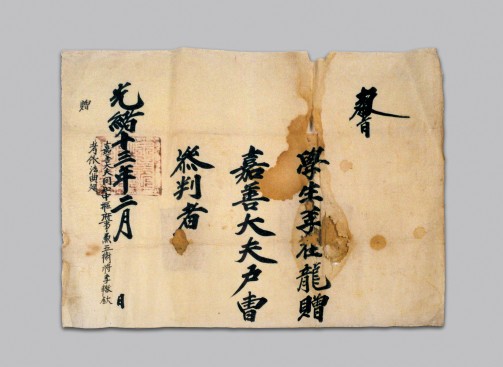 敎旨
學生李在龍贈
嘉善大夫戶曹
叅判者
光緖十三年二月 日
嘉善大夫同知中樞府事兼五衛將李
考依法典追
贈